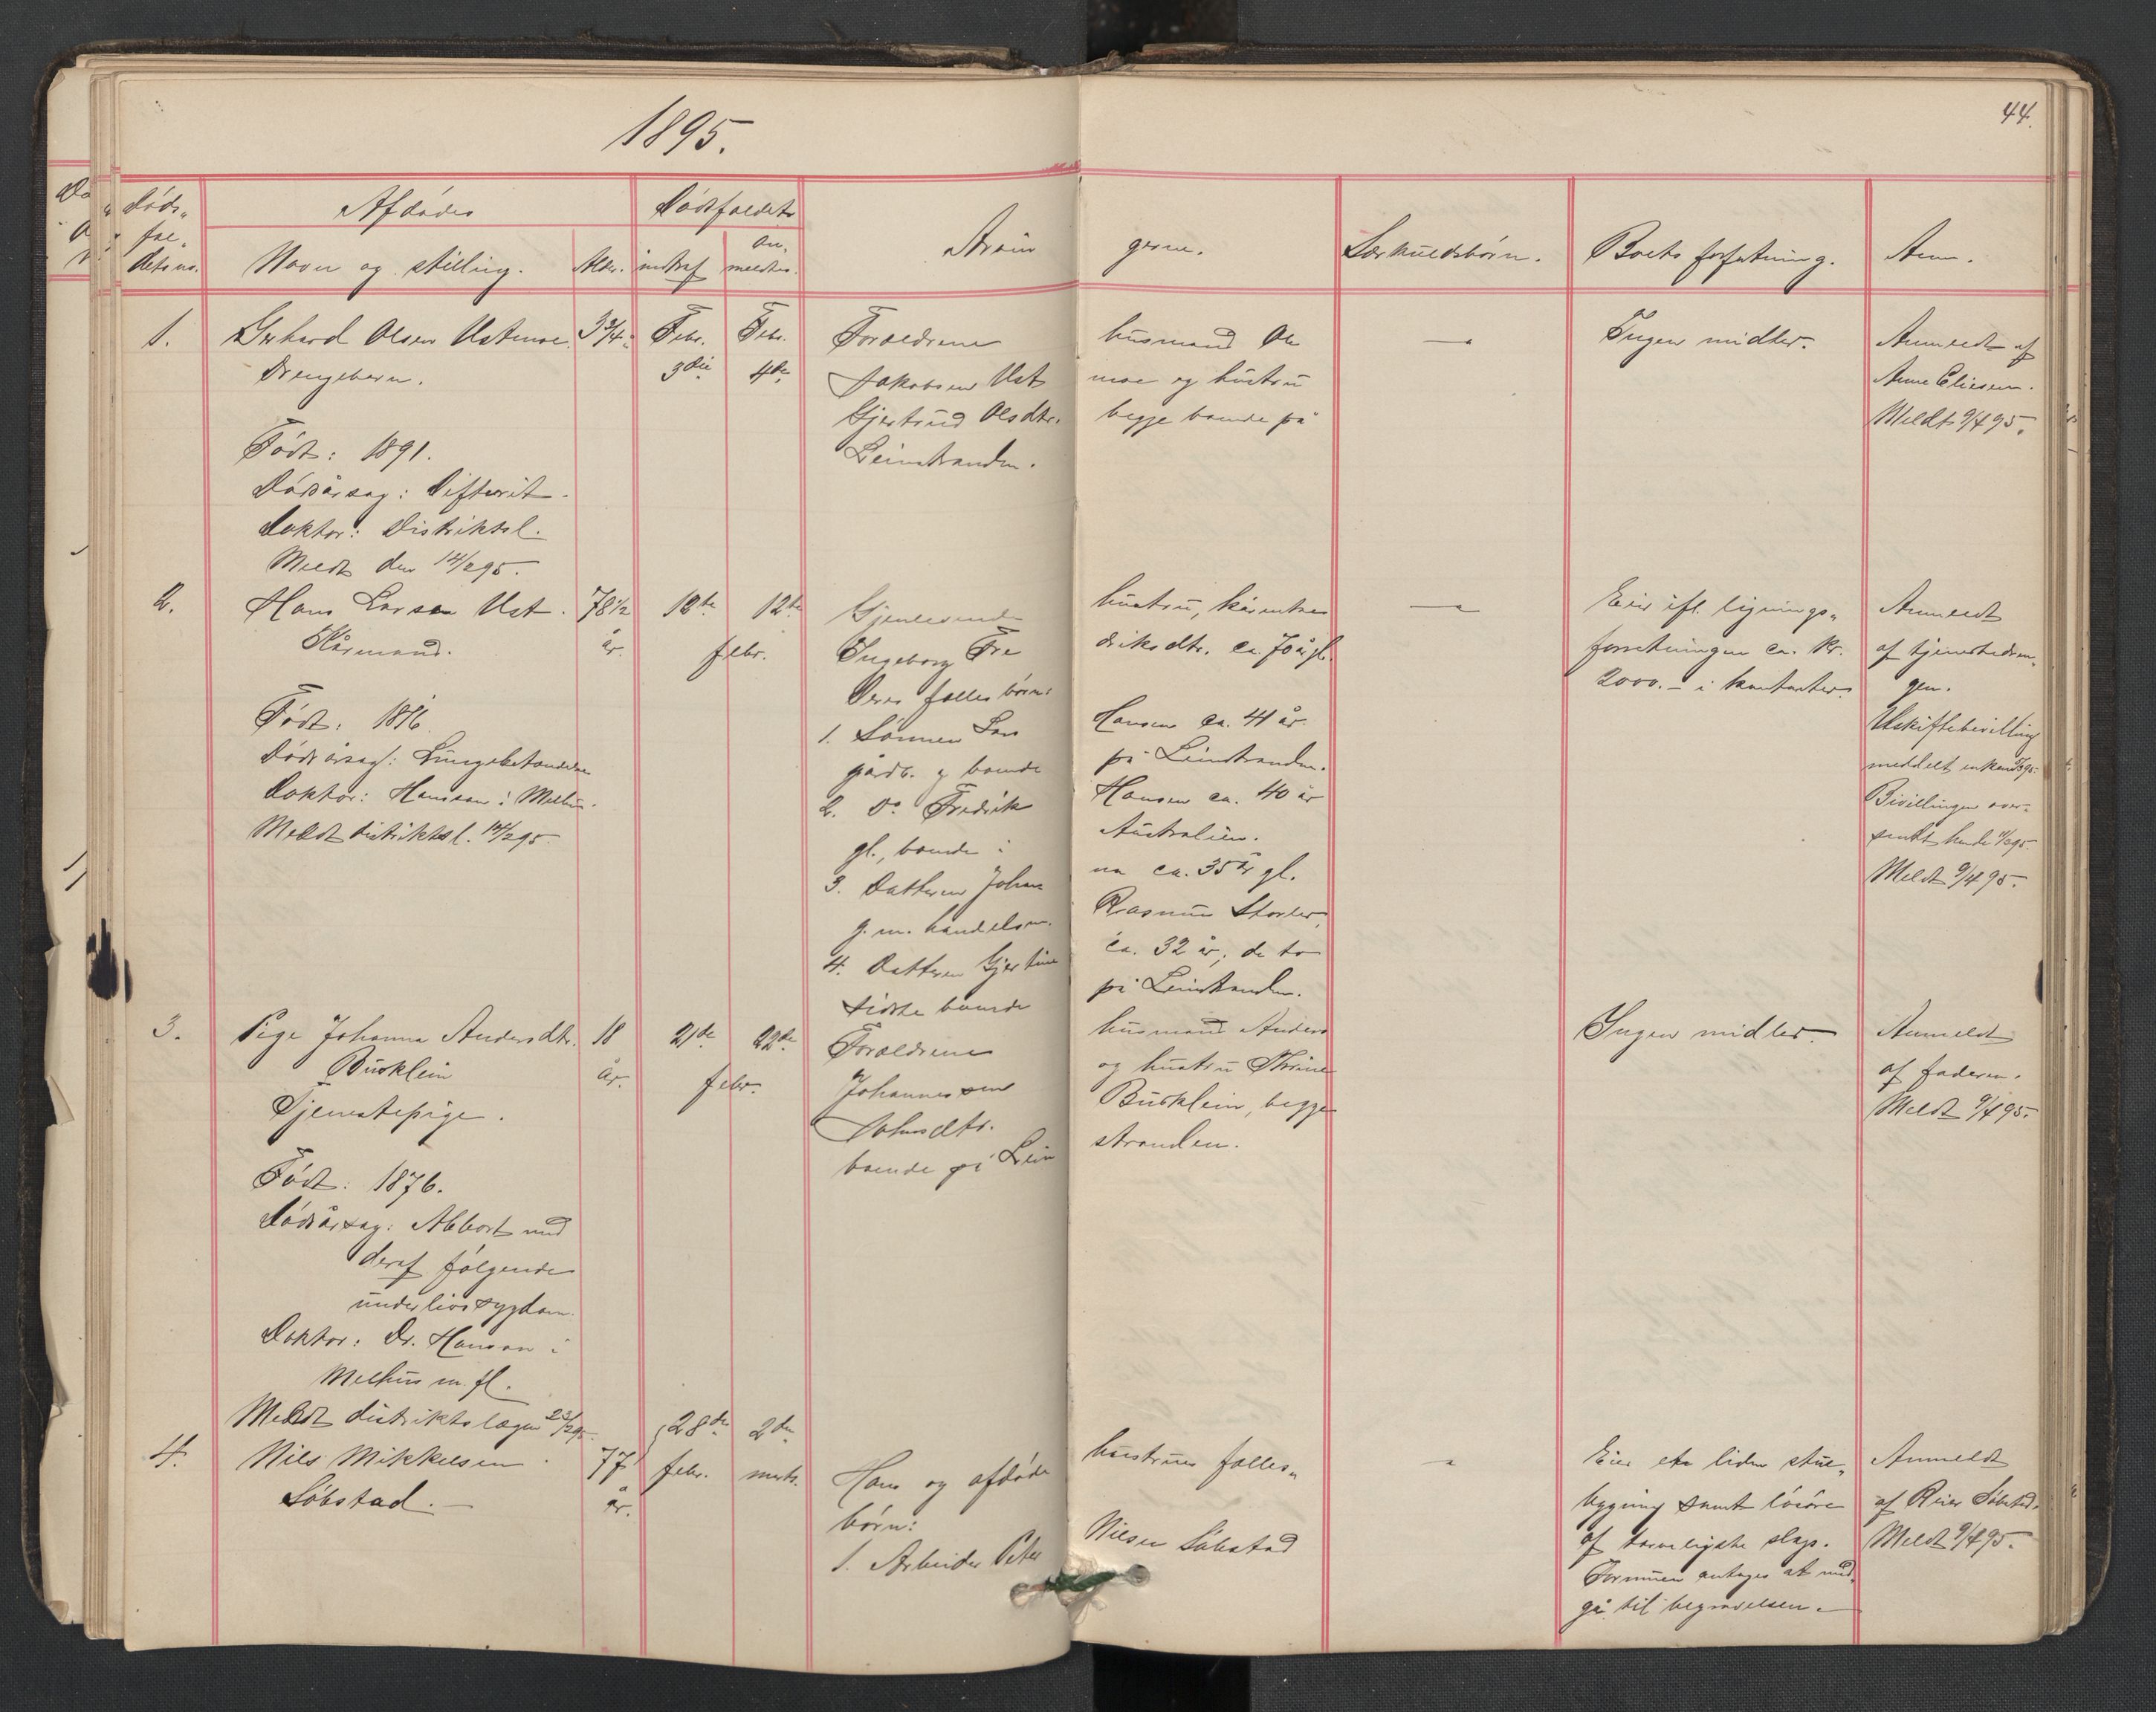 1895.
44.
Døds-
fal-
dets no.
Afdødes
Navn og stilling.
Alder.
Dødsfaldets
indtraf
an-
meldtes.
Arvin
gerne.
Særkuldsbørn.
Boets forfatning.
Anm.
1.
Gerhard Olsen Ustmoe
Drengebarn.
Født: 1891.
Dødsårsag: Difterit.
Doktor: Distriktsl.
Meldt den 14/2 95.
3 3/4
Febr.
3die
Febr.
4de
Forældrene
husmand Ole
Jakobsen Ust
moe og hustru
Gjertrud Olsdtr.
begge boende på
Leinstranden.
Ingen midler.
Anmeldt af
Anne Eliesen.
Meldt 9/4 95.
2.
Hans Larsen Ust.
Kårmand.
Født: 1816.
Dødsårsag: Lungebetændelse
Doktor: Hansson i Melhus.
Meldt distriktsl. 14/2 95.
78 1/2
år.
12te
12te
febr.
Gjenlevende
hustru, kårenken
Ingeborg Fre
driksdtr. ca. 70 år gl.
Deres fælles børn:
1. Sønnen Lars
Hansen ca. 41 år.
gårdb. og boende
på Leinstranden.
2. Do Fredrik
Hansen ca. 40 år
gl., boende i
Australien.
3. Datteren Johan
na ca. 35 år gl.
g. m. handelsm.
Rasmus Storler,
4. Datteren Gjertine
ca. 32 år, de to
sidste boende
på Leinstranden.
Eier ifl. lignings-
forretningen ca. kr.
2000.- i kontanter.
Anmeldt
af tjenestedren-
gen.
Uskiftebevilling
meddelt enken
Bevillingen over-
sendt hende
Meldt 9/4 95.
3.
Pige Johanna Andersdtr.
Busklein
Tjenestepige.
Født: 1876.
Dødsårsag: Abbort med
deraf følgende
underlivssygdom.
Doktor: Dr. Hanson i
Melhus m. fl.
Meldt distriktslægen 23/2 95.
18
år.
21de
22de
febr.
Forældrene
husmand Anders
Johannessen
og hustru Thrine
Johnsdtr.
Busklein, begge
boende på Lein
stranden.
Ingen midler.
Anmeldt
af faderen.
Meldt 9/4 95.
4.
Nils Mikkelsen
Søbstad.
77
år.
28de
febr.
2den
marts.
Hans og afdøde
hustrues fælles-
børn:
1. Arbeider Peter
Nilsen Søbstad
Eier en liden stue-
bygning samt løsøre
af tarveligste slags.
Formuen antages at med-
gå til begravelsen.
Anmeldt
af Reier Søbstad.
Meldt 9/4 95.